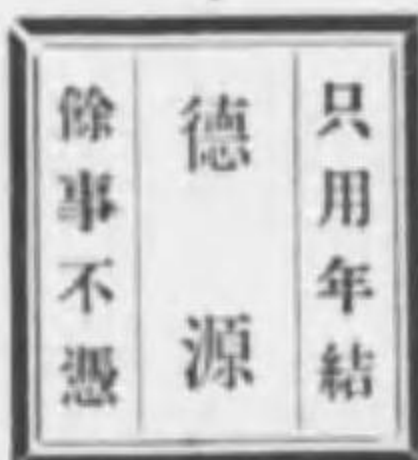 只用年結
德源
餘事不憑